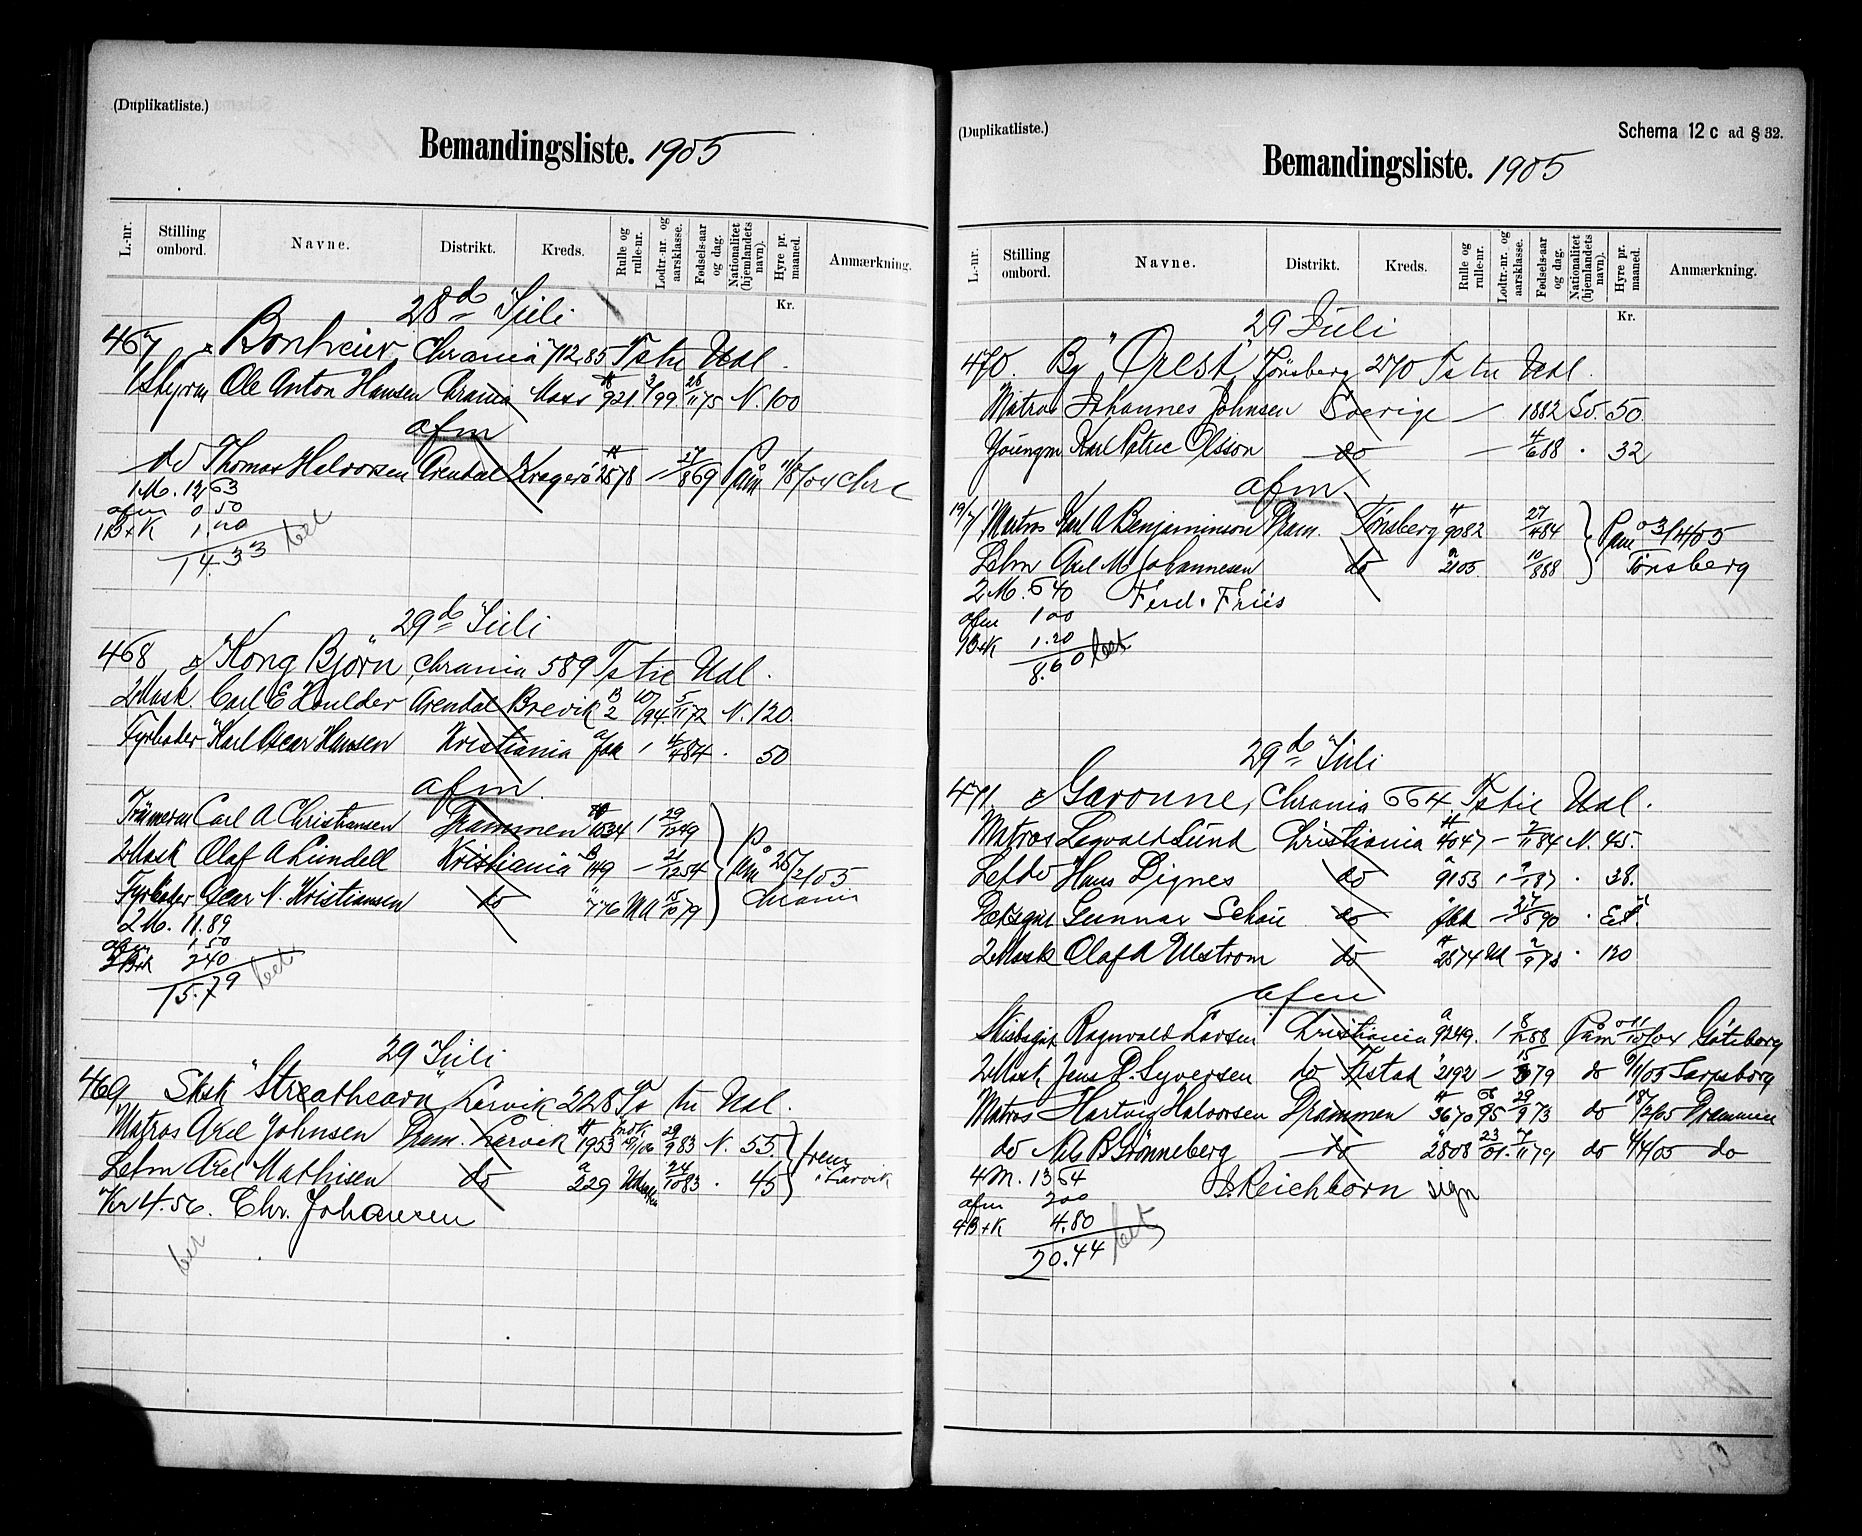 (Duplikatliste.)
Bemandingsliste. 1905
L.-nr. Stilling ombord. Navne. Distrikt. Kreds. Rulle og rulle-nr. Lodtr.-nr. og aarsklasse. Fødsels-aar og dag. Nationalitet (hjemlandets navn). Hyre pr. maaned. Anmærkning.
Kr.
28d Juli
467 Bonheur, Chrania 712,85 Ts til Udl.
1 Styrm Ole Anton Hansen Chrania Moss A 921. 3/99 26/11 75 N. 100
afm
do Thomas Halvorsen Arendal Kragerø A 2578 - 27/8 69 Påm 11/8/04 Chr
1 M. 12,63
afm 0 50
1B+K 1.20
14.33 bet
29d Juli
468 Kong Bjørn, Chrania 589 Ts til Udl.
2 Mask. Carl E Houlder Arendal Brevik B 2 107/94. 5/11 72 N. 120
Fyrbøder Karl Oscar Hansen Kristiania 1 4/4 84 . 50
afm.
Carl A Christiansen Drammen 1034 1 29/12 49
2 Mask Olaf A Lundell Kristiania B 149 - 21/12 54 Påm 25/2/05
Fyrbøder Oscar N. Kristiansen do " 776 Ud 15/10 79 Chrania
2 M. 11.89
afm 1,50
2 B+K 2.40
15.79 bet
29 Juli
469 Sksk "Streathearn" Larvik 228 Ts til Udl.
Matros Axel Johnsen Dram. Larvik A 1953 29/9 83 N. 55. frem
Letm Axel Mathisen do a 229 24/10 83 . 45 i Larvik
Kr 4.56. Chr. Johansen
bet
(Duplikatliste.)
Schema 12 c ad § 32.
Bemandingsliste. 1905
L.-nr. Stilling ombord. Navne. Distrikt. Kreds. Rulle og rulle-nr. Lodtr.-nr. og aarsklasse. Fødsels-aar og dag. Nationalitet (hjemlandets navn). Hyre pr. maaned. Anmærkning.
Kr.
29 Juli
470. By "Orest" Tönsberg 270 Ts til Udl.
Matros Johannes Johnsen Sverige - 1882 Sv. 50.
Youngm Karl Patric Olsson do - 4/6 88 . 32
afm
19/7 Matros Karl A Benjaminson Dram. Tönsberg A 9082 27/4 84 Påm 3/4/05
Letm Axel M Johannesen do a 2105. 10/8 88 Tönsberg
2 M. 6 40 Ferd. Friis
afm 1 00
1B+K 1.20
8.60 bet
29d Juli
471 Garonne, Chrania 664. Ts til Udl.
Matros Sigvald Lund Christiania A 4047 - 2/11 84 N. 45.
Letm Hans Dignes do a 9153 1 2/1 87 . 38.
Dæksgut Gunnar Schøie do - 27/5 90 .
2 Mask Olaf A Ullstrom do A 2874 Ud 2/9 78 . 120
afm
Ragnvald Larsen Christiania a 9249. 1 8/2 88 Påm 11/10/04 Göteborg
2 Mask Jens P. Syversen do Fr.stad " 2192 - 15/ 79 do 9/1/05 Sarpsborg
Matros Hartvig Halvorsen Drammen A 3670 68/95 29/9 73 do 18/2/05 Drammen
do Nils B Grønneberg do " 2808 23/01. 7/11 79 do 4/4/05 do
4 M. 13 64 J. Reichborn sign
afm 2 00
4B+K 4.80
20.44 bet